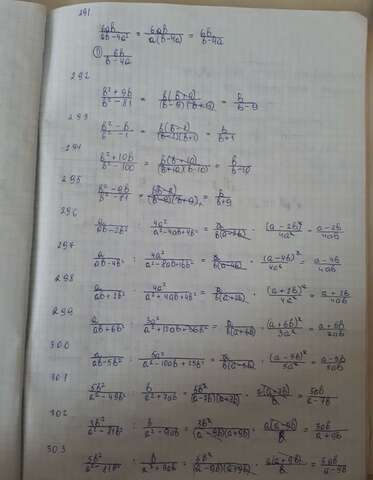 291
6ab/ab-4a² = 6ab/a(b-4a) = 6b/b-4a
① 6b/b-4a
292
b²+9b/b²-81 = b(b+9)/(b-9)(b+9) = b/b-9
293
b²-b/b²-1 = b(b-1)/(b-1)(b+1) = b/b+1
294
b²+10b/b²-100 = b(b+10)/(b+10)(b-10) = b/b-10
295
b²-9b/b²-81 = b/b+9
296
a/ab-2b² : 4a²/a²-4ab+4b² = a/b(a-2b) · (a-2b)²/4a² = a-2b/4ab
297
a/ab-4b² : 4a²/a²-8ab+16b² = a/b(a-4b) · (a-4b)²/4a² = a-4b/4ab
298
a/ab+2b² : 4a²/a²+4ab+4b² = a/b(a+2b) · (a+2b)²/4a² = a+2b/4ab
299
a/ab+6b² : 3a²/a²+12ab+36b² = a/b(a+6b) · (a+6b)²/3a² = a+6b/3ab
300
a/ab-5b² : 5a²/a²-10ab+25b² = a/b(a-5b) · (a-5b)²/5a² = a-5b/5ab
301
5b²/a²-49b² : b/a²+7ab = 5b²/(a-7b)(a+7b) · a(a+7b)/b = 5ab/a-7b
302
3b²/a²-81b² : b/a²-9ab = 3b²/(a-9b)(a+9b) · a(a-9b)/b = 3ab/a+9b
303
5b²/a²-81b² : b/a²+9ab = 5b²/(a-9b)(a+9b) · a(a+9b)/b = 5ab/a-9b